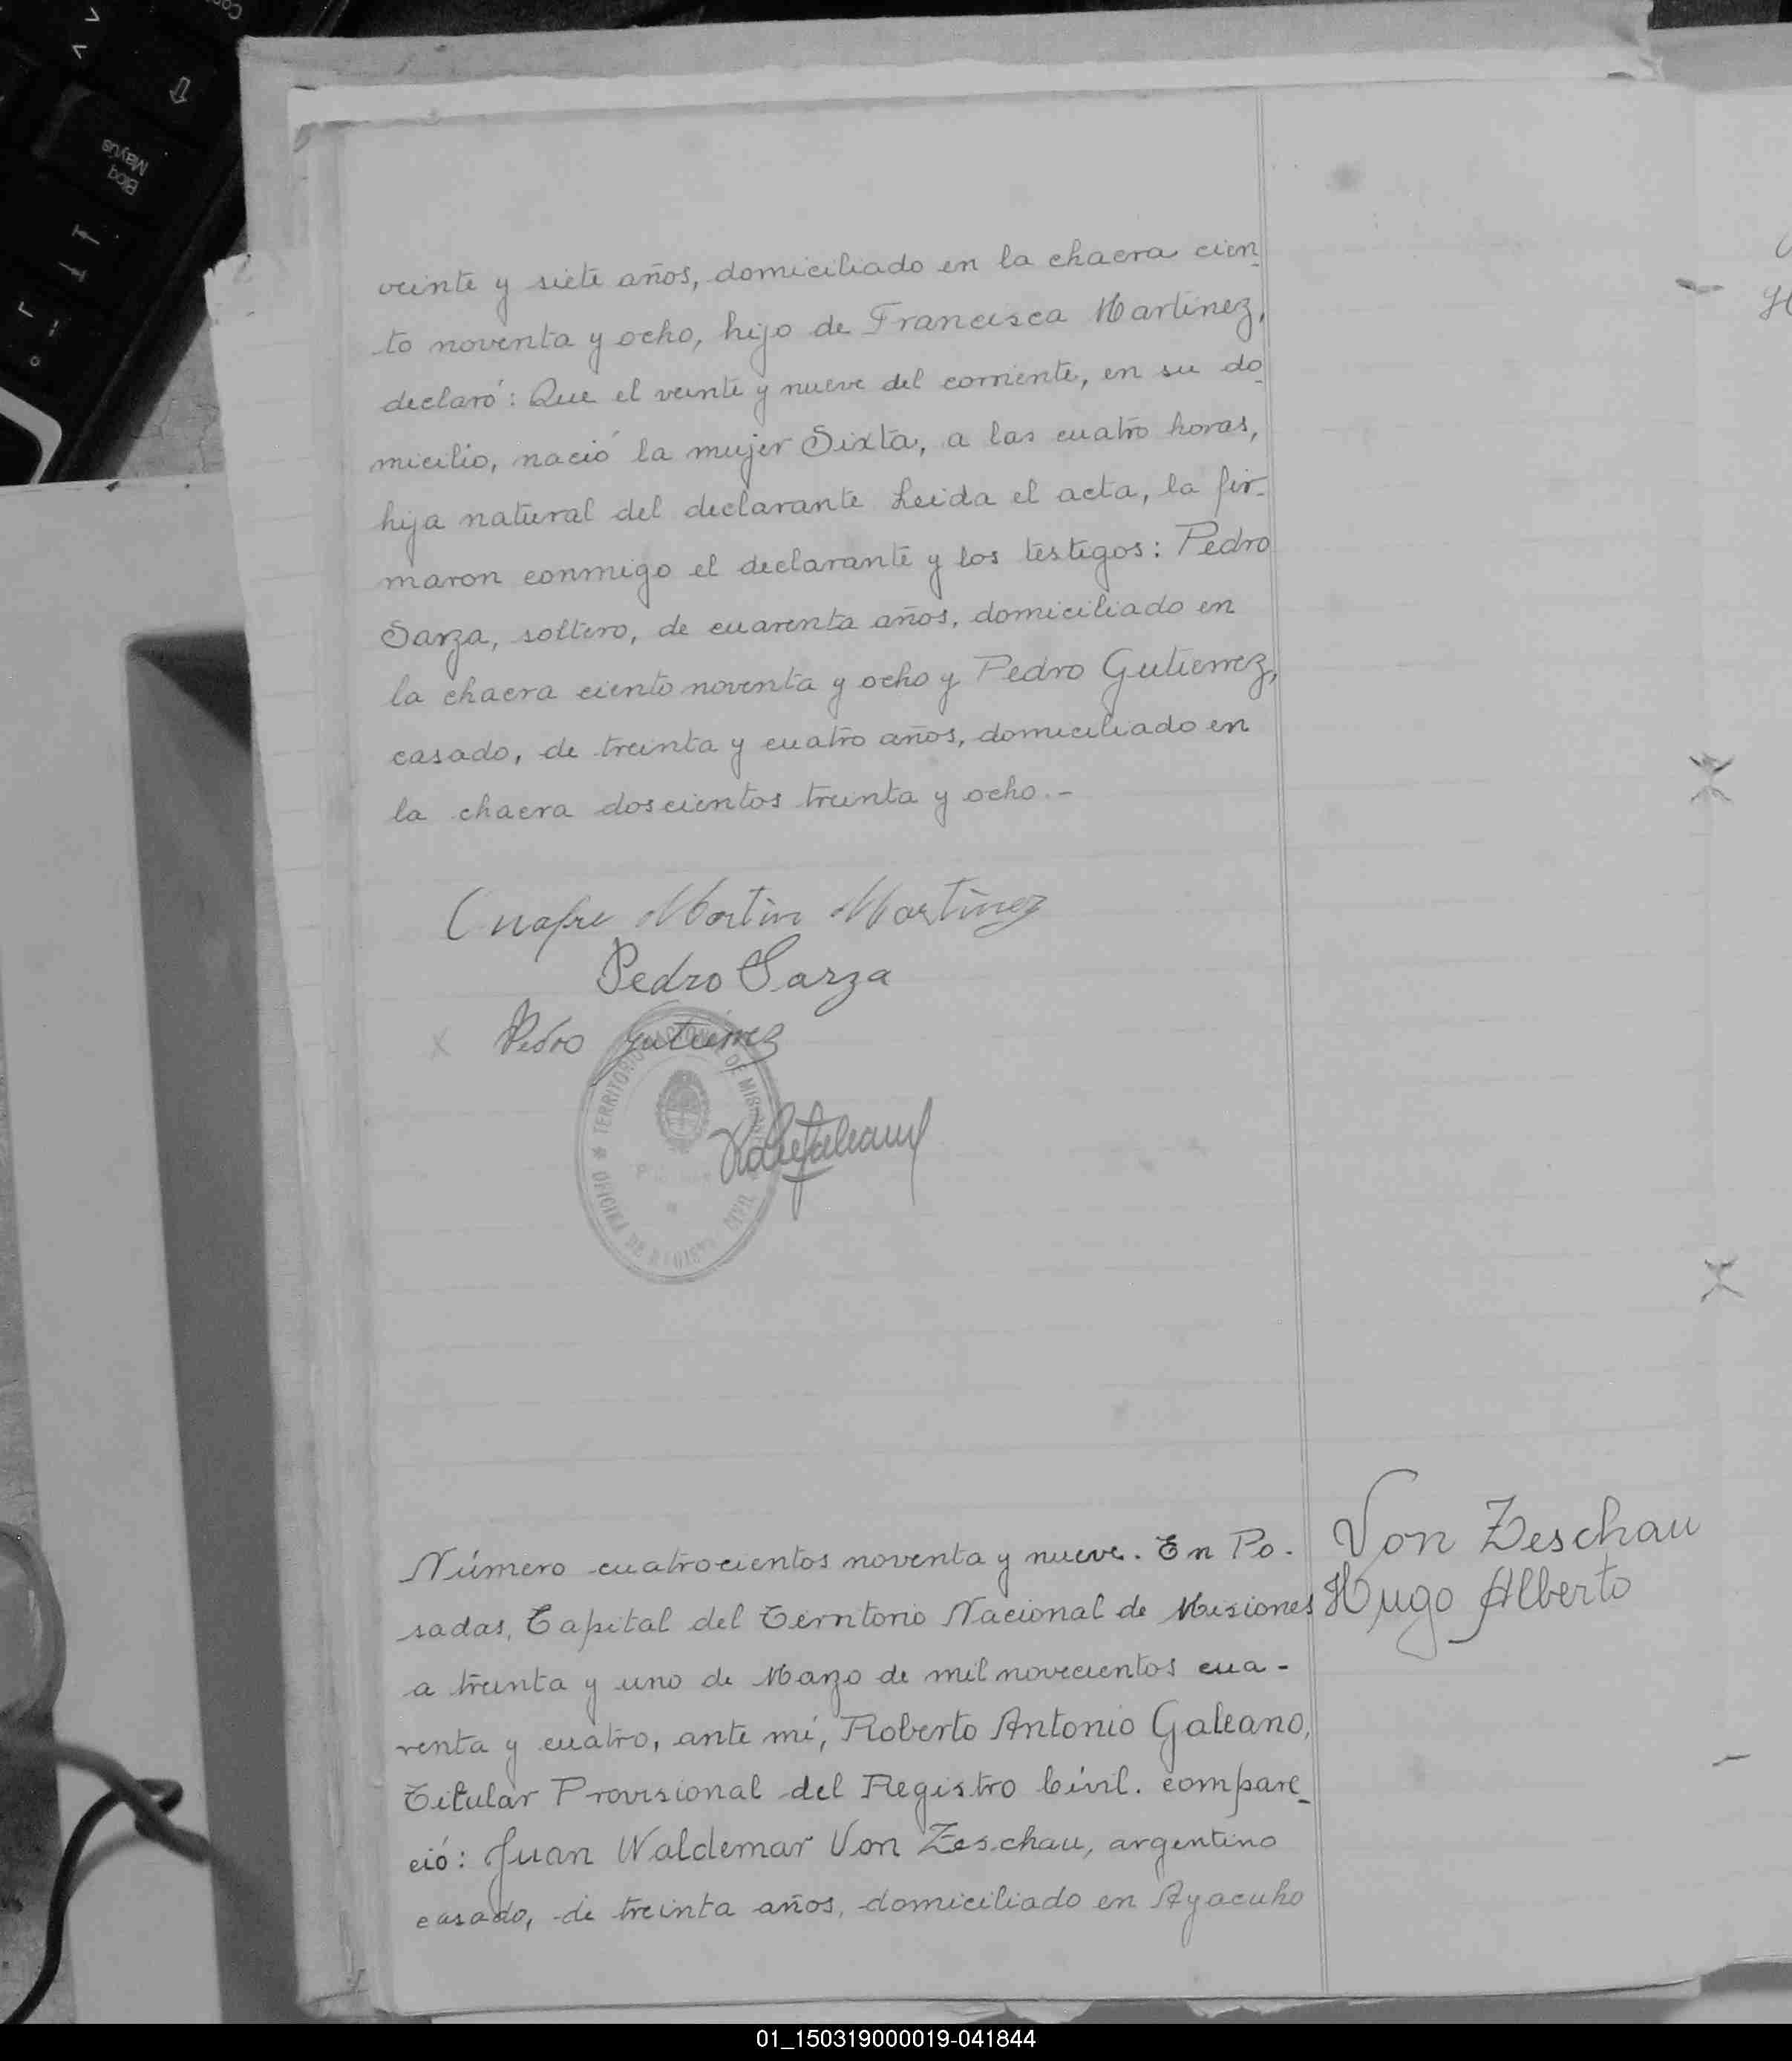 veinte y siete años, domiciliado en la chacra cien_
to noventa y ocho, hijo de Francisca Martinez,
declaró: Que el veinte y nueve del corriente, en su do_
micilio, nació la mujer Sixta, a las cuatro horas,
hija natural del declarante Leida el acta, la fir-
maron conmigo el declarante y los testigos: Pedro
Sarza, soltero, de cuarenta años, domiciliado en
la chacra ciento noventa y ocho y Pedro Gutierrez,
casado, de treinta y cuatro años, domiciliado en
la chacra doscientos treinta y ocho.-
Martin Martinez
Pedro Sarza
x Pedro Gutierrez
TERRITORIO NACIONAL DE MISIONES
OFICINA DE REGISTRO CIVIL
Número cuatrocientos noventa y nueve. En Po-
sadas, Capital del Territorio Nacional de Misiones
a treinta y uno de Marzo de mil novecientos cua-
renta y cuatro, ante mí, Roberto Antonio Galeano,
Titular Provisional del Registro Civil. compare_
ció: Juan Waldemar Von Zeschau, argentino
casado, de treinta años, domiciliado en Ayacuho
Von Zeschau
Hugo Alberto
Bloq
Mayús
01_150319000019-041844